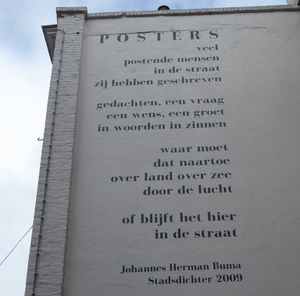 POSTERS
veel
postende mensen
in de straat
zij hebben geschreven
gedachten, een vraag
een wens, een groet
in woorden in zinnen
waar moet
dat naartoe
over land over zee
door de lucht
of blijft het hier
in de straat
Johannes Herman Buma
Stadsdichter 2009